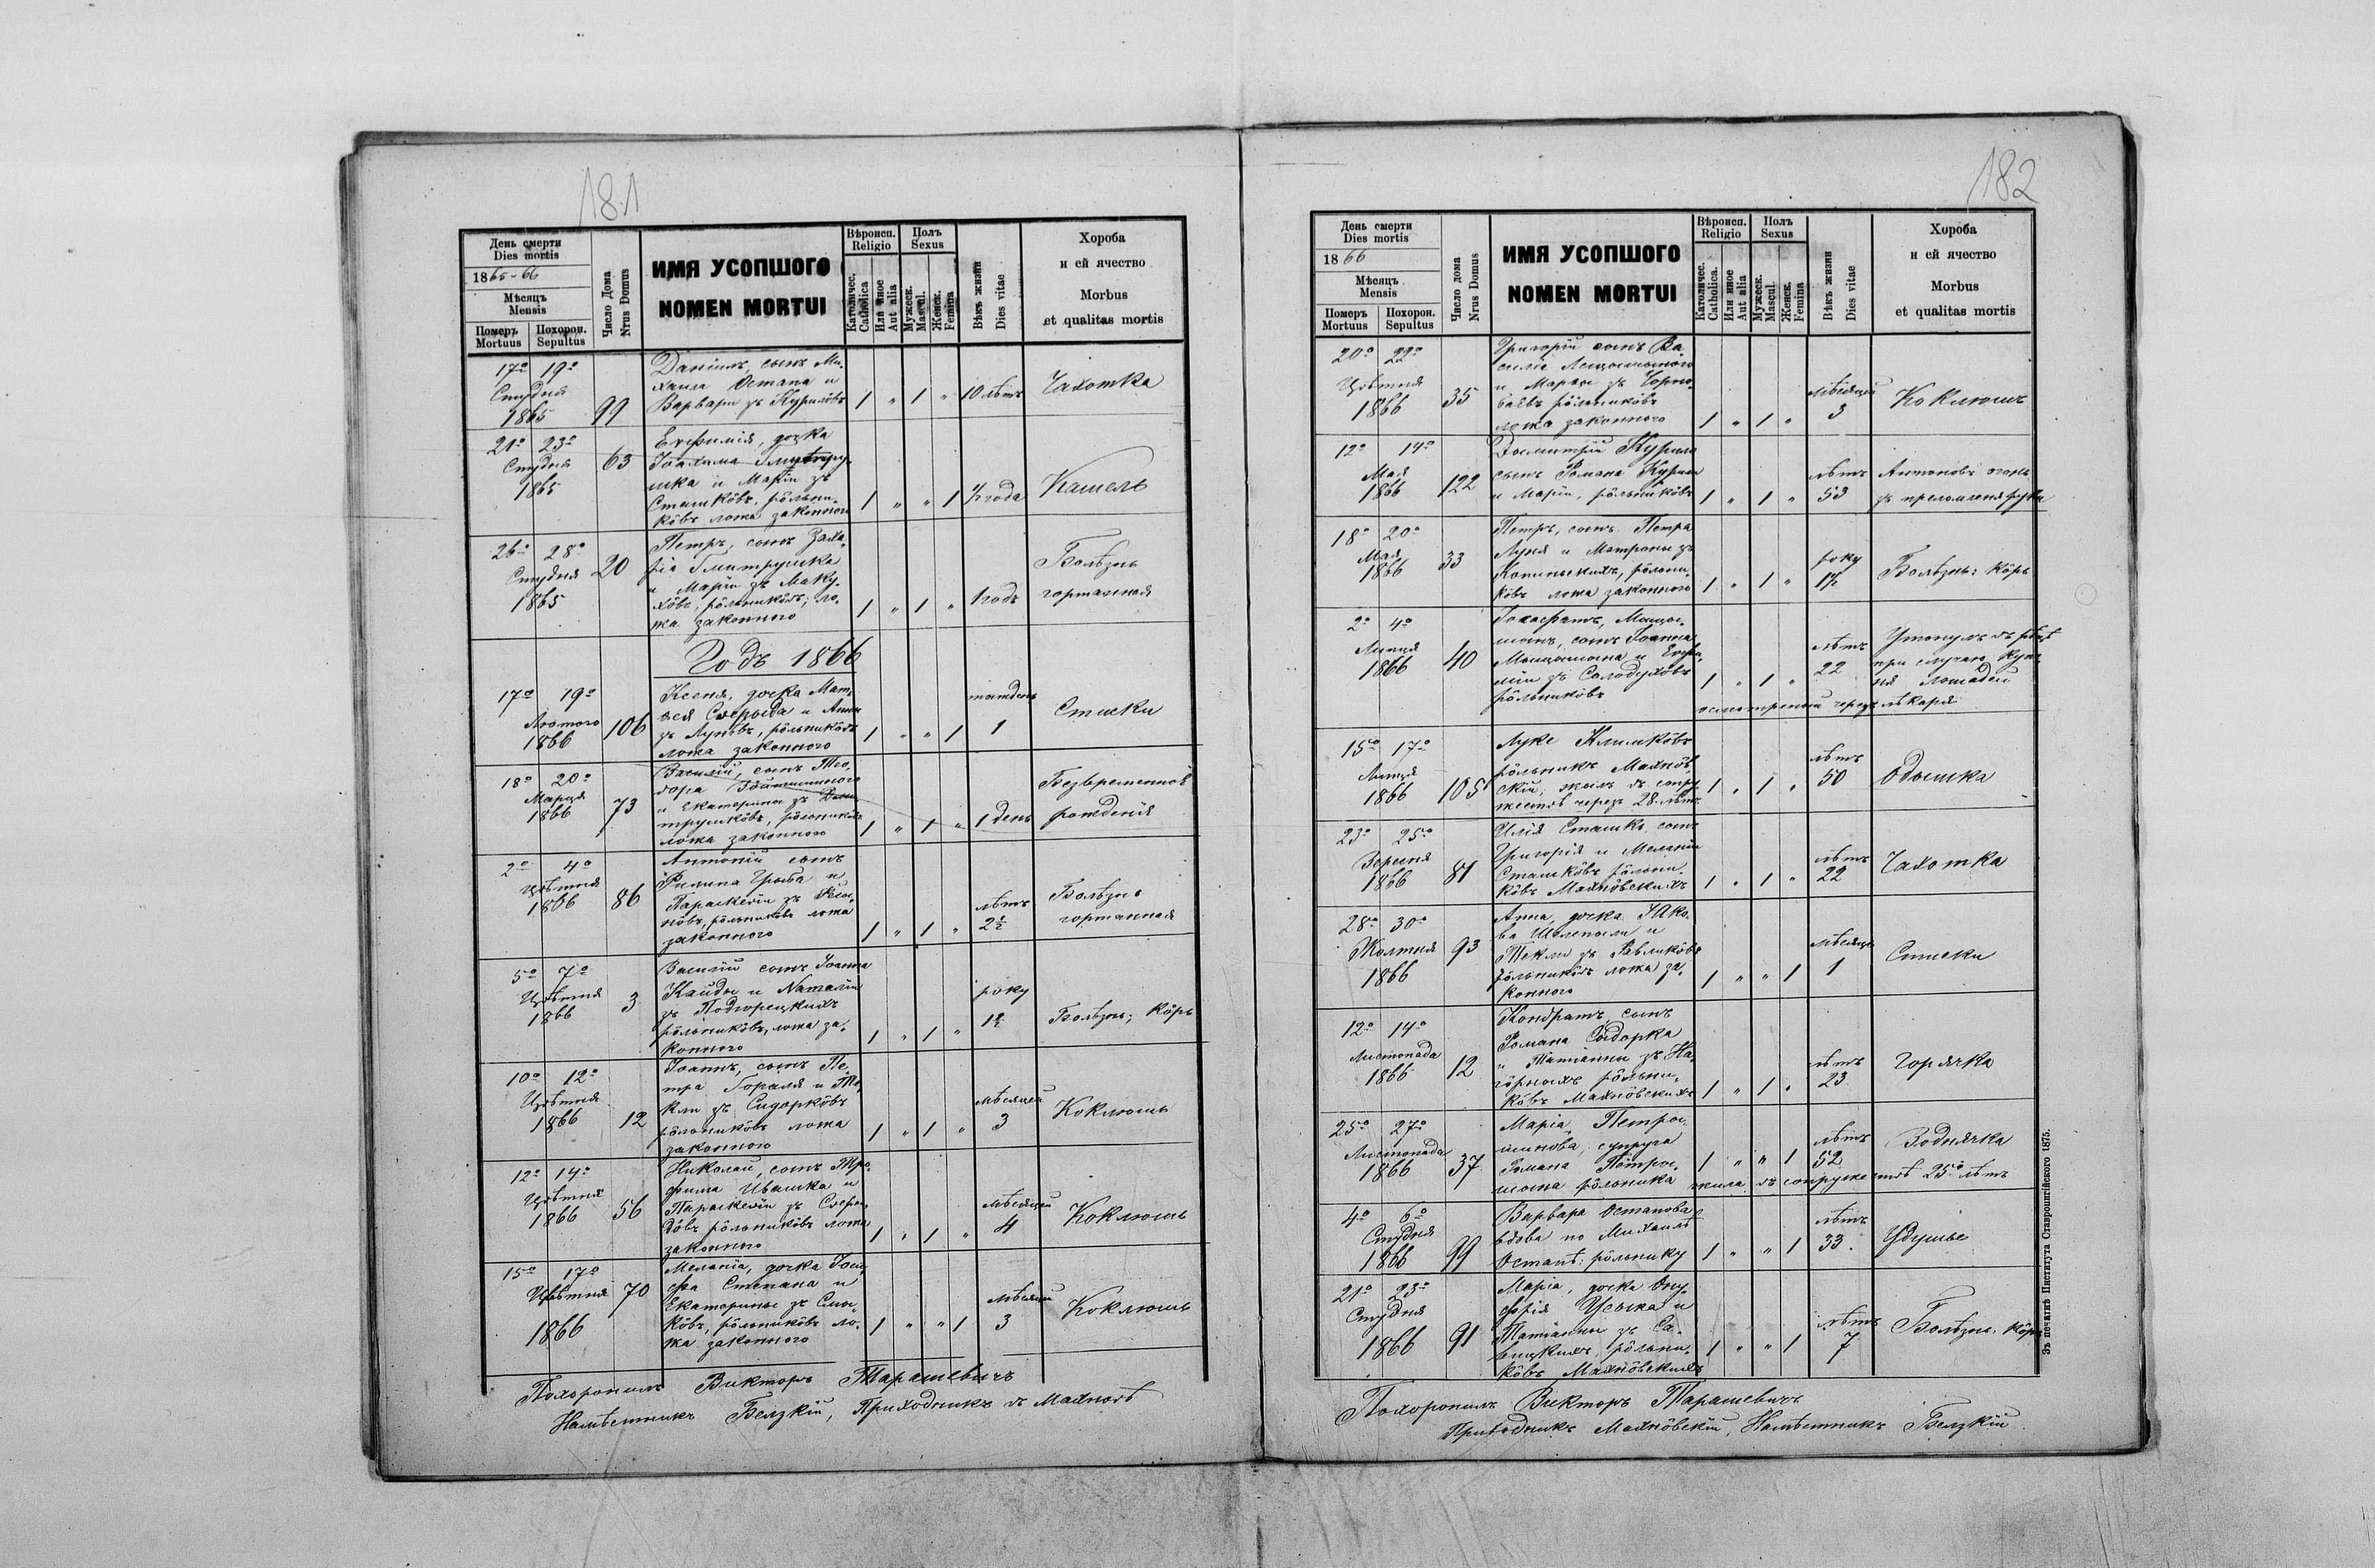 181
День смерти
Dies mortis
1865-66
Мѣсяцъ
Mensis
Померъ Похорон.
Mortuus Sepultus
Число Дома
Nrus Domus
ИМЯ УСОПШОГО
NOMEN MORTUI
Вѣроисп.
Religio
Католичес.
Catholica
Или иное
Aut alia
Полъ
Sexus
Мужеск.
Mascul.
Женск.
Femina
Вѣкъ жизни
Dies vitae
Хороба
и ей ячество
Morbus
et qualitas mortis
17º 19º
Студня
1865
99
Данiилъ, сынъ Ми-
хаила Остапа и
Варвары зъ Куриловъ
1 " 1 "
10 лѣтъ
Чахотка
21º 23º
Студня
1865
63
Евфимія, дочка
Іоахима Гмитру-
шка и Маріи зъ
Сташкôвъ, рôльни-
кôвъ ложа законного
1 " " 1
½ года
Кашель
26º 28º
Студня
1865
20
Петръ, сынъ Заха-
рiа Гмитрушка
и Маріи зъ Маку-
хôвъ, рôльникôвъ; ло-
жа законного
1 " 1 "
1 годъ
Болѣзнь
гортанная
Годъ 1866
17º 19º
Лютого
1866
106
Ксеня, дочка Мат-
вея и Анны
зъ Лунôвъ, рôльникôвъ
ложа законного
1 " " 1
тиждень
1
Стиски
18º 20º
Марця
1866
73
Василій, сынъ Тео-
дора
и Екатерины зъ Дми-
трушкôвъ, рôльникôвъ
ложа законного
1 " 1 "
1 день
Безвременное
рожденія
2º 4º
Цвѣтня
1866
86
Антоній сынъ
Филипа Грыба и
Параскевіи зъ
рôльникôвъ ложа
законного
1 " 1 "
лѣтъ
2½
Болѣзнь
гортанная
5º 7º
Цвѣтня
1866
3
Василій сынъ Іоанна
Кайды и Наталіи
зъ Подгорецкихъ
рôльникôвъ, ложа за-
конного
1 " 1 "
року
1½
Болѣзнь; Кôръ
10º 12º
Цвѣтня
1866
12
Іоаннъ, сынъ Пе-
тра Гораля и Те-
кли зъ Сидоркôвъ
рôльникôвъ ложа
законного
1 " 1 "
мѣсяцей
3
Коклюшь
12º 14º
Цвѣтня
1866
56
Николай, сынъ Тро-
фима Ивашка и
Параскевіи зъ
рôльникôвъ ложа
законного
1 " 1 "
мѣсяцей
4
Коклюшь
15º 17º
Цвѣтня
1866
70
Меланіа, дочка Іоси-
фа Степана и
Екатерины зъ
рôльникôвъ ло-
жа законного
1 " " 1
мѣсяцей
3
Коклюшь
Похоронилъ Викторъ Тарашевичъ
Намѣстникъ Белзкій, Приходникъ въ Махновѣ
182
День смерти
Dies mortis
1866
Мѣсяцъ
Mensis
Померъ Похорон.
Mortuus Sepultus
Число дома
Nrus Domus
ИМЯ УСОПШОГО
NOMEN MORTUI
Вѣроисп.
Religio
Католичес.
Catholica.
Или иное
Aut alia
Полъ
Sexus
Мужеск.
Mascul.
Женск.
Femina
Вѣкъ жизни
Dies vitae
Хороба
и ей ячество
Morbus
et qualitas mortis
20º 22º
Цвѣтня
1866
35
Григорій сынъ Ва-
силіа
и Марты зъ Чорно-
рôльникôвъ
ложа законного
1 " 1 "
мѣсяцей
3
Коклюшъ
12º 14º
Мая
1866
122
Дымитрій Курило
сынъ Романа Курила
и Маріи, рôльникôвъ
1 " 1 "
лѣтъ
53
Антоновъ огонь
зъ преломленя руки
18º 20º
Мая
1866
33
Петръ, сынъ Петра
Луня и Матроны зъ
Копинскихъ, рôльни-
кôвъ ложа законного
1 " 1 "
року
1½
Болѣзнь: Кôръ
2º 4º
Липця
1866
40
Іосафатъ,
сынъ Іоанна
и Евфи-
міи зъ Солодухôвъ
рôльникôвъ
1 " 1 "
лѣтъ
22
Утонулъ въ
при случаю купа-
ня лошадей
осмотреный черезъ лѣкаря
15º 17º
Липця
1866
105
Луке Климкôвъ
рôльникъ Махнôв-
скій, жилъ въ супру-
жествѣ черезъ 28 лѣтъ
1 " 1 "
лѣтъ
50
Одышка
23º 25º
Вересня
1866
81
Илія Сташко, сынъ
Григорія и Меланіи
Сташкôвъ рôльни-
кôвъ Махнôвскихъ
1 " 1 "
лѣтъ
22
Чахотка
28º 30º
Жолтня
1866
93
Анна, дочка Яко-
ва и
Текли зъ Павликôвъ
рôльникôвъ ложа за-
конного
1 " " 1
мѣсяць
1
Стиски
12º 14º
Листопада
1866
12
Кондратъ, сынъ
Романа Сидорка
и Татіанны зъ На-
гôрныхъ рôльни-
кôвъ Махнôвскихъ
1 " 1 "
лѣтъ
23
Горячка
25º 27º
Листопада
1866
37
Маріа, Петро-
шинова, супруга
Романа
рôльника жила въ супружествѣ 25º лѣтъ
1 " " 1
лѣтъ
52
Воднячка
4º 6º
Студня
1866
99
Варвара Остапова
вдова по Михаилѣ
Остапѣ: рôльнику
1 " " 1
лѣтъ
33.
Удушье
21º 23º
Студня
1866
91
Маріа, дочка Ону-
фріа Усыка и
Татіанны зъ Са-
вицкихъ, рôльни-
кôвъ Махнôвскихъ
1 " " 1
лѣтъ
7
Болѣзнь. Кôръ
Похоронилъ Викторъ Тарашевичъ
Приходникъ Махнôвскій, Намѣстникъ Белзкій
Зъ печатнѣ Института Ставропигійского 1875.